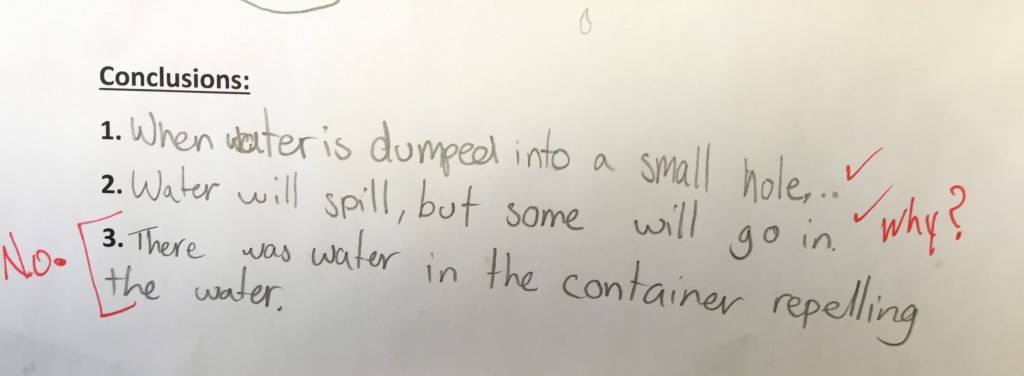 Conclusions:
1. When water is dumped into a small hole,.. ✓
2. Water will spill, but some will go in. ✓ why?
No. [ 3. There was water in the container repelling
the water.